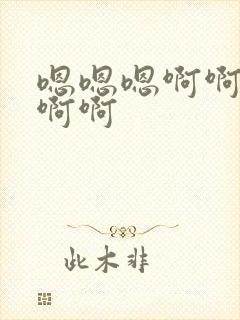 嗯嗯嗯啊啊
啊啊
此木非